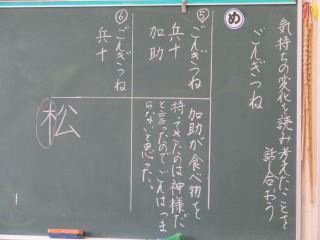 め
気持ちの変化を読み、考えたことを
話し合おう
ごんぎつね
⑤ごんぎつね
兵十
加助
加助が食べ物を
持ってきたのは神様だ
と言ったのでごんはつま
らないと思った。
⑥ごんぎつね
兵十
松